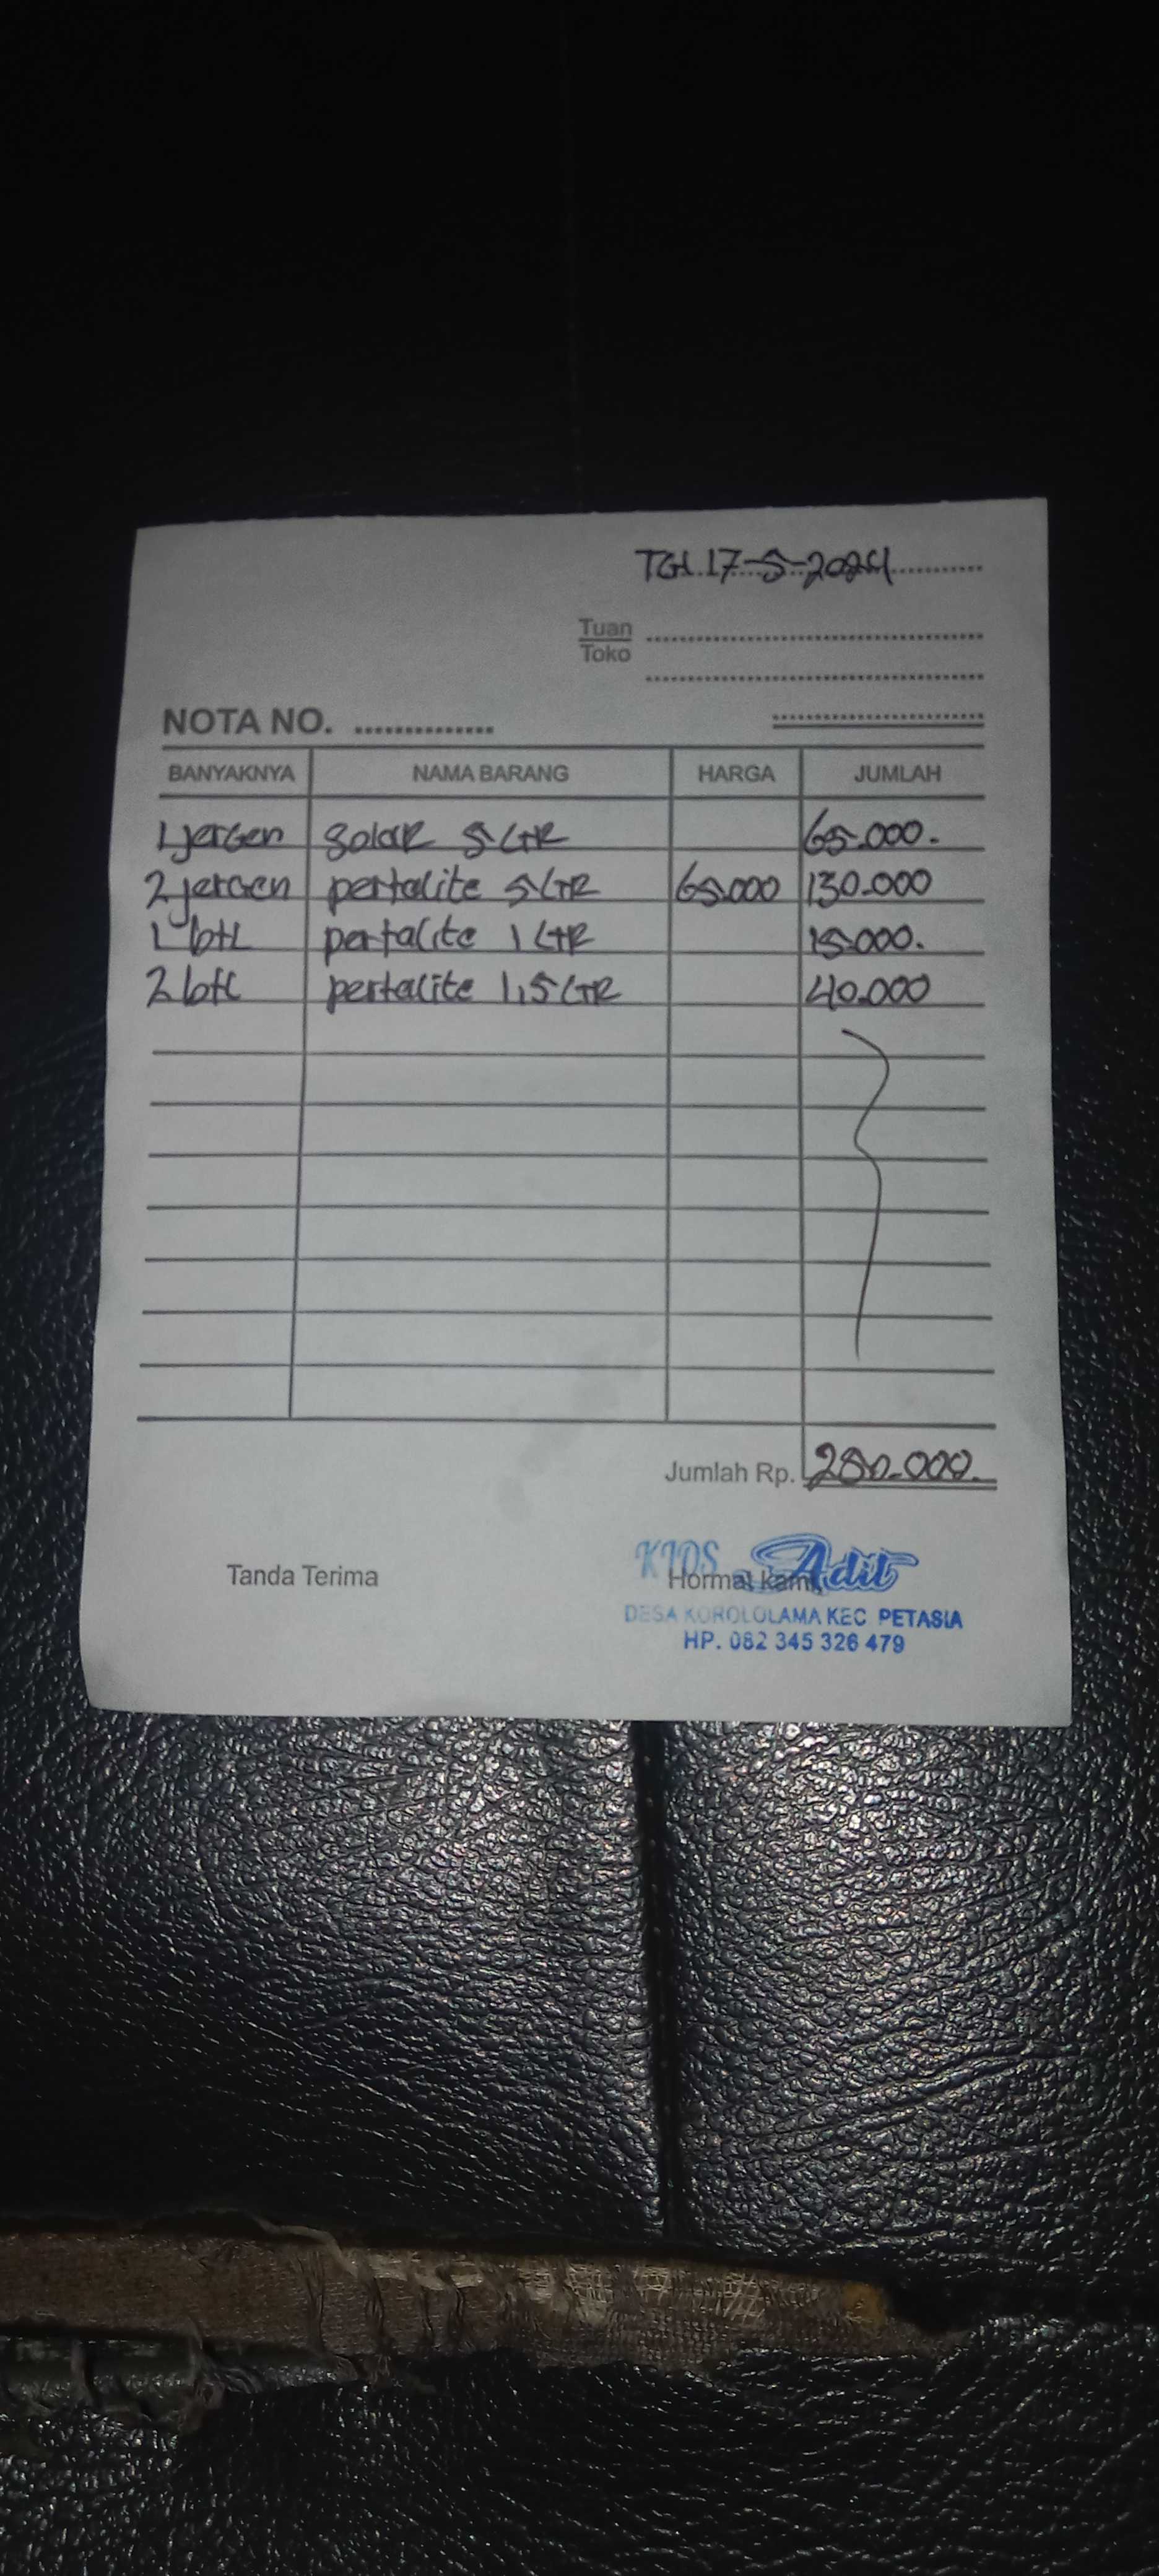 TGL.17-5-2024
Tuan
Toko
NOTA NO.
BANYAKNYA NAMA BARANG HARGA JUMLAH
1 jergen solar 5 LTR 65.000.
2 jergen pertalite 5 LTR 65.000 130.000
1 btl pertalite 1 LTR 15.000.
2 btl pertalite 1,5 LTR 40.000
Jumlah Rp. 250.000.
Tanda Terima Hormat kami,
KIOS Adit
DESA KOROLOLAMA KEC PETASIA
HP. 082 345 326 479